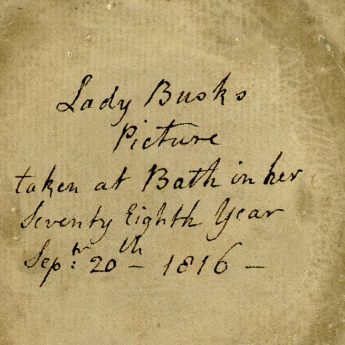 Lady Busks
Picture
taken at Bath in her
Seventy Eighth Year
Sepr: 20th – 1816 –